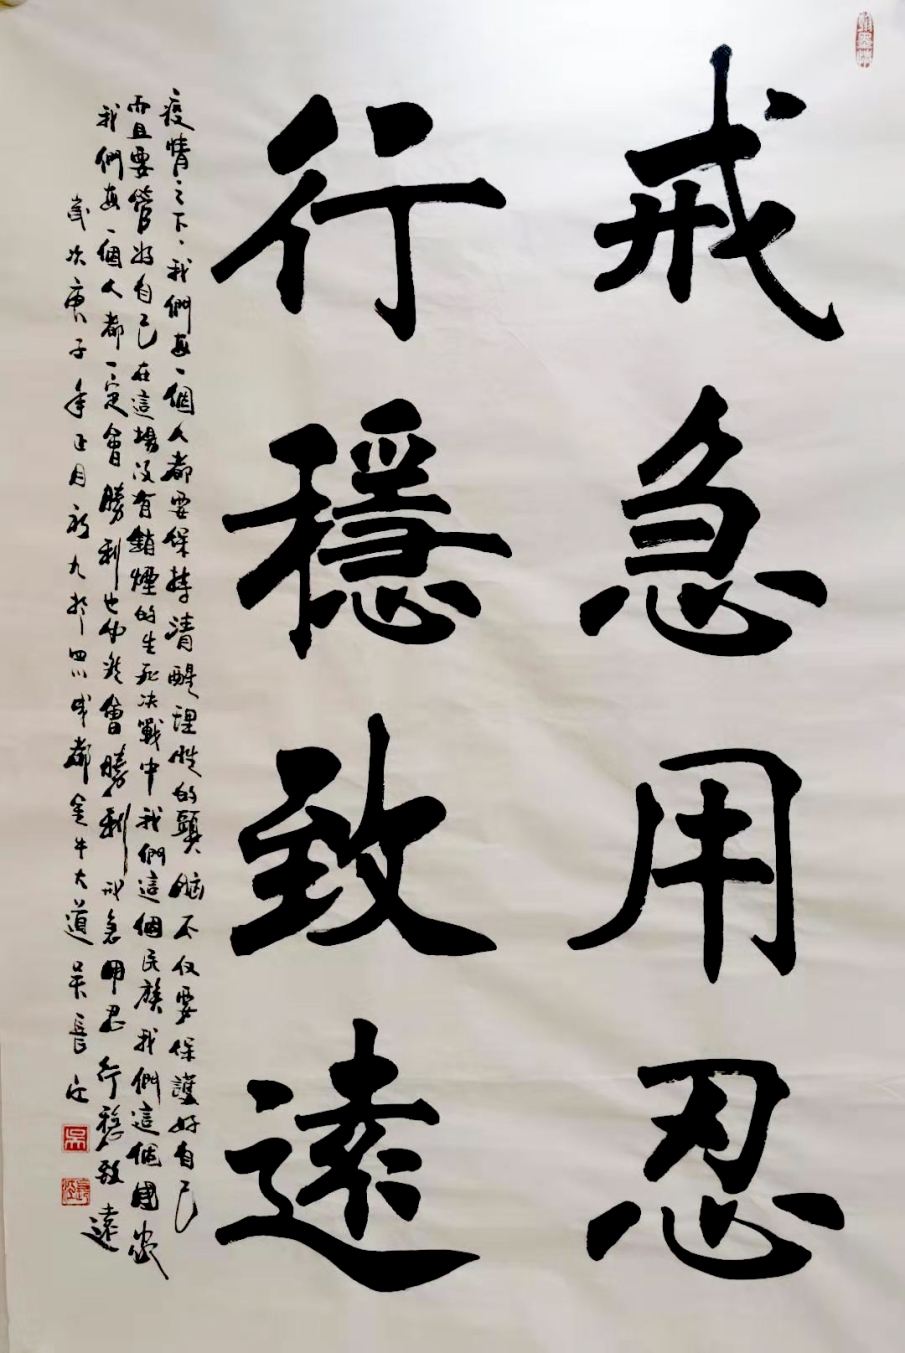 戒急用忍
行穩致遠
疫情之下、我們每一個人都要保持清醒理性的頭腦不仅要保護好自己
而且要管好自己在這場沒有銷煙的生死决戰中我們這個民族我們這個國家
我們每一個人都一定會勝利也必然會勝利戒急用忍行穩致遠
歲次庚子年正月初九於四川成都金牛大道吴長江
吴